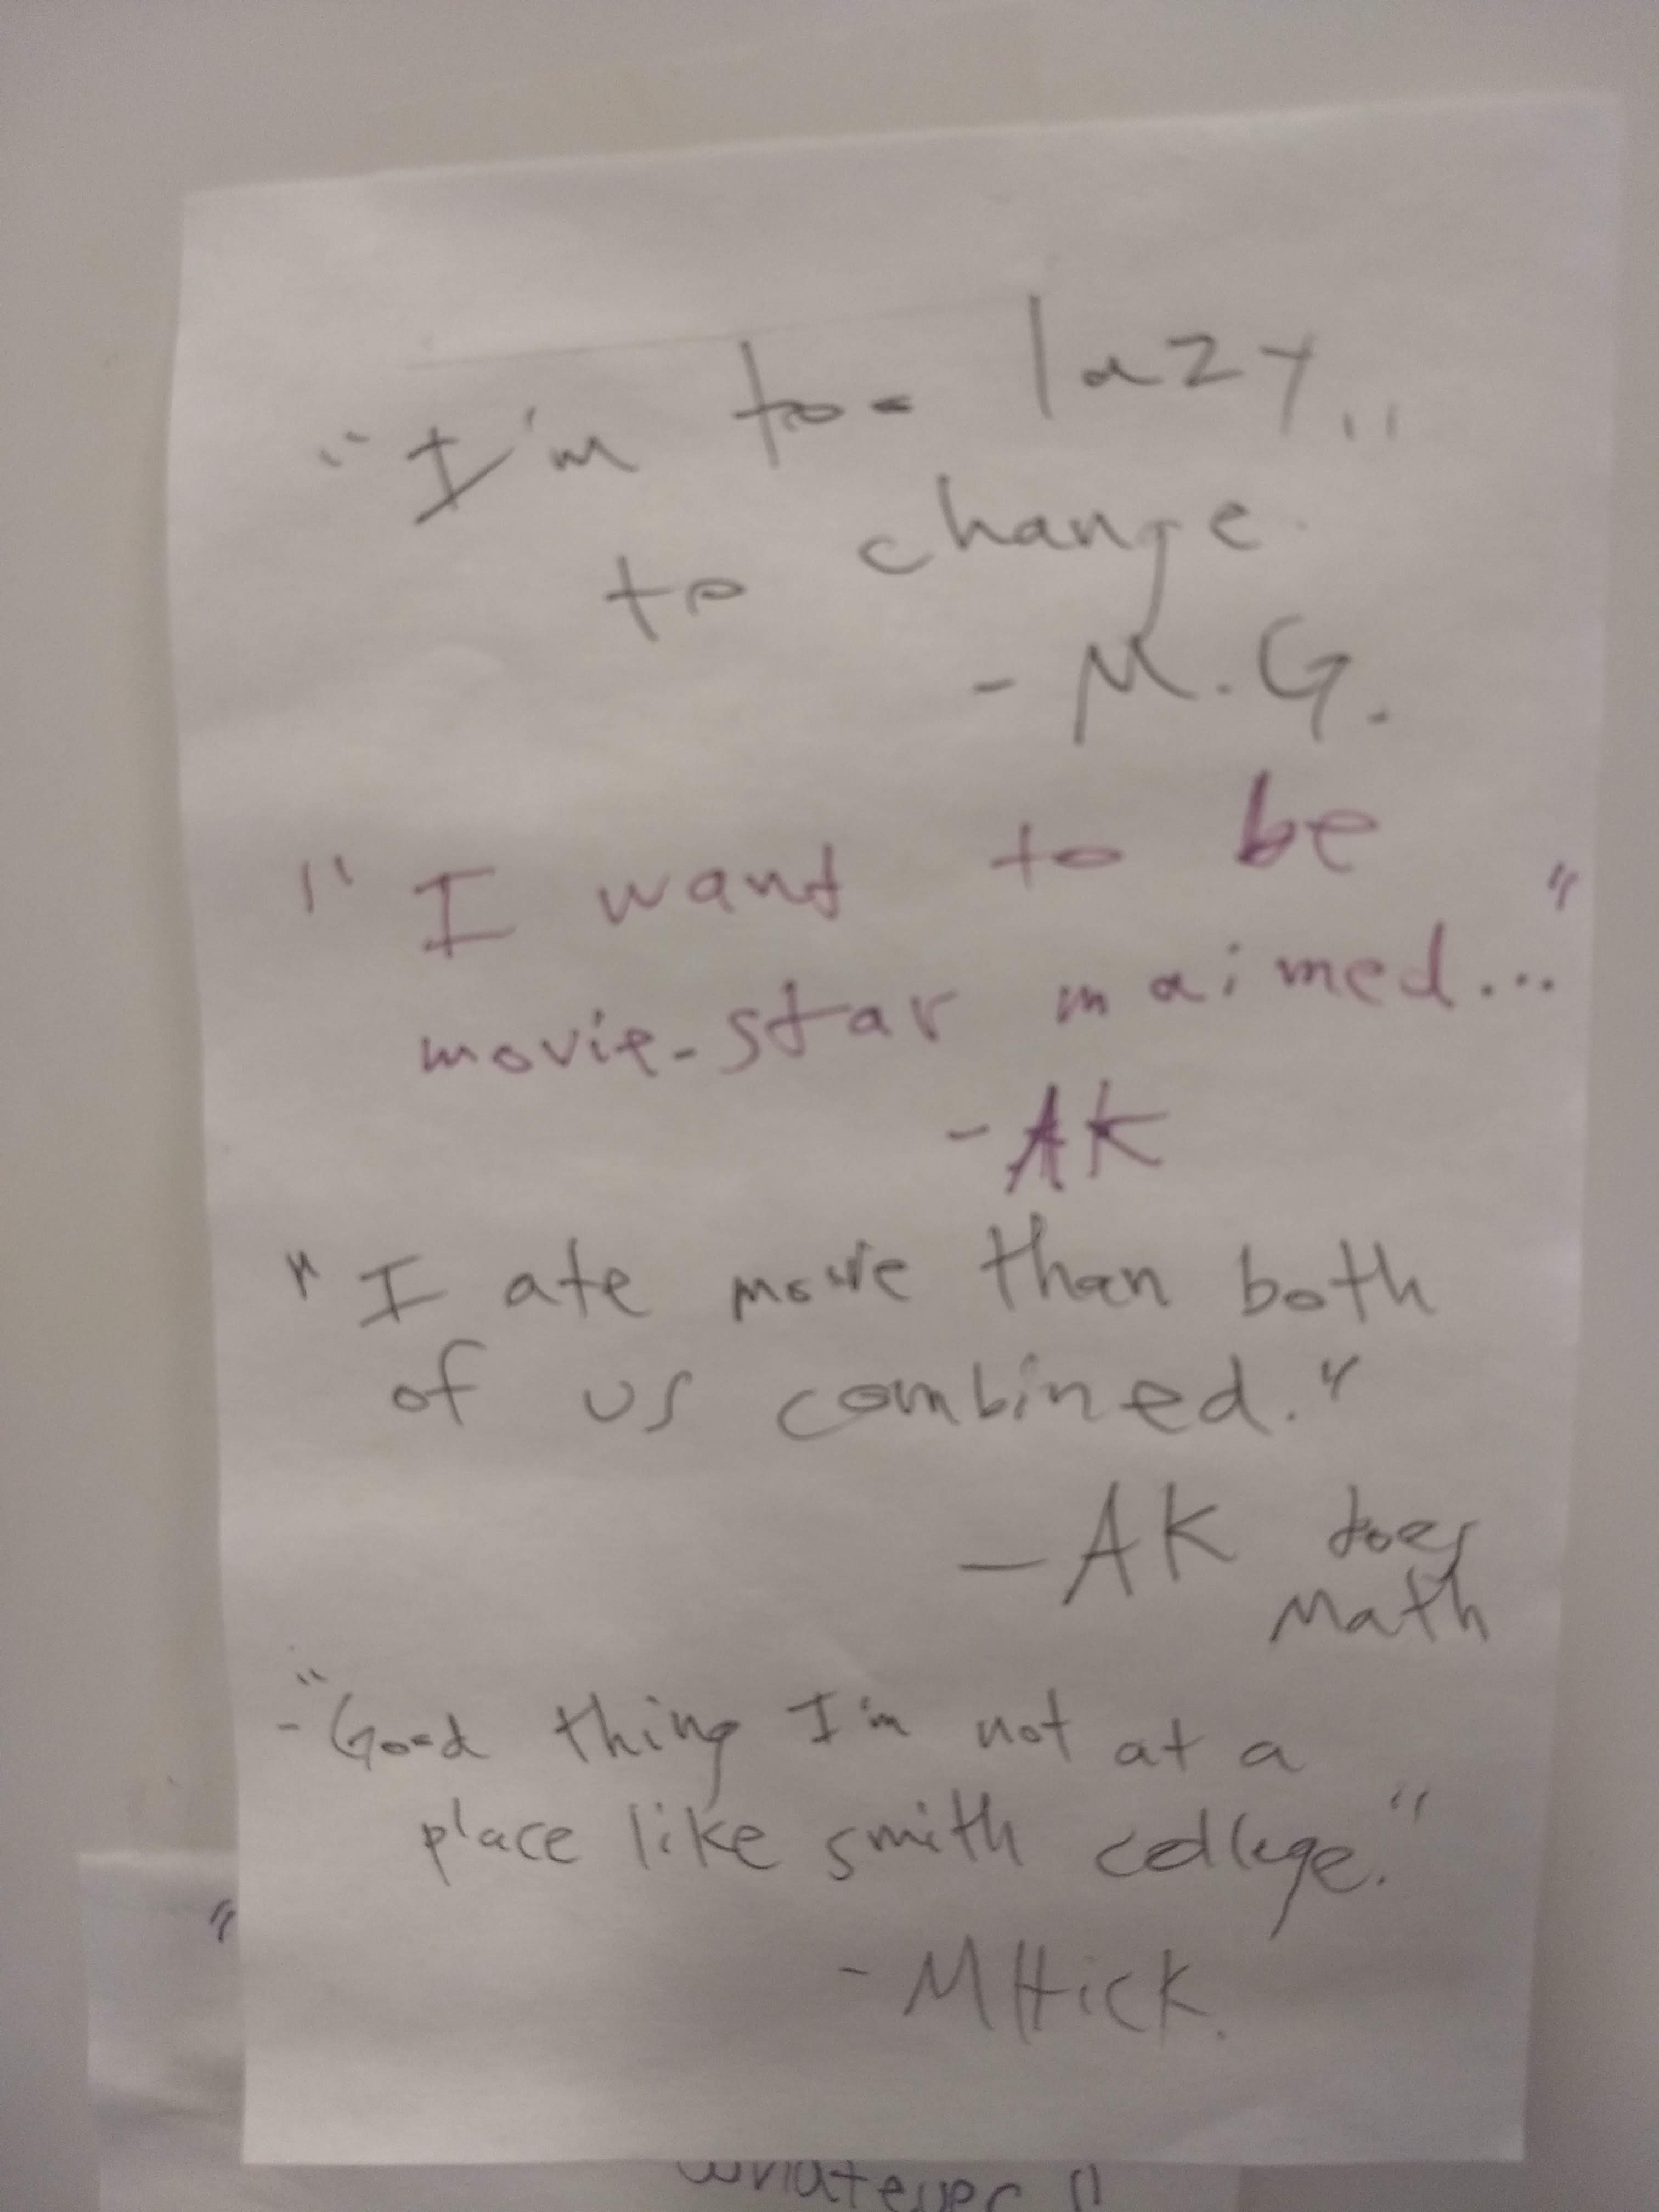 "I'm too lazy"
to change.
- M.G.
"I want to be
movie-star maimed..."
-AK
"I ate more than both
of us combined."
-AK does
Math
-"Good thing I'm not at a
place like smith college."
- MHick.
"
whatever"